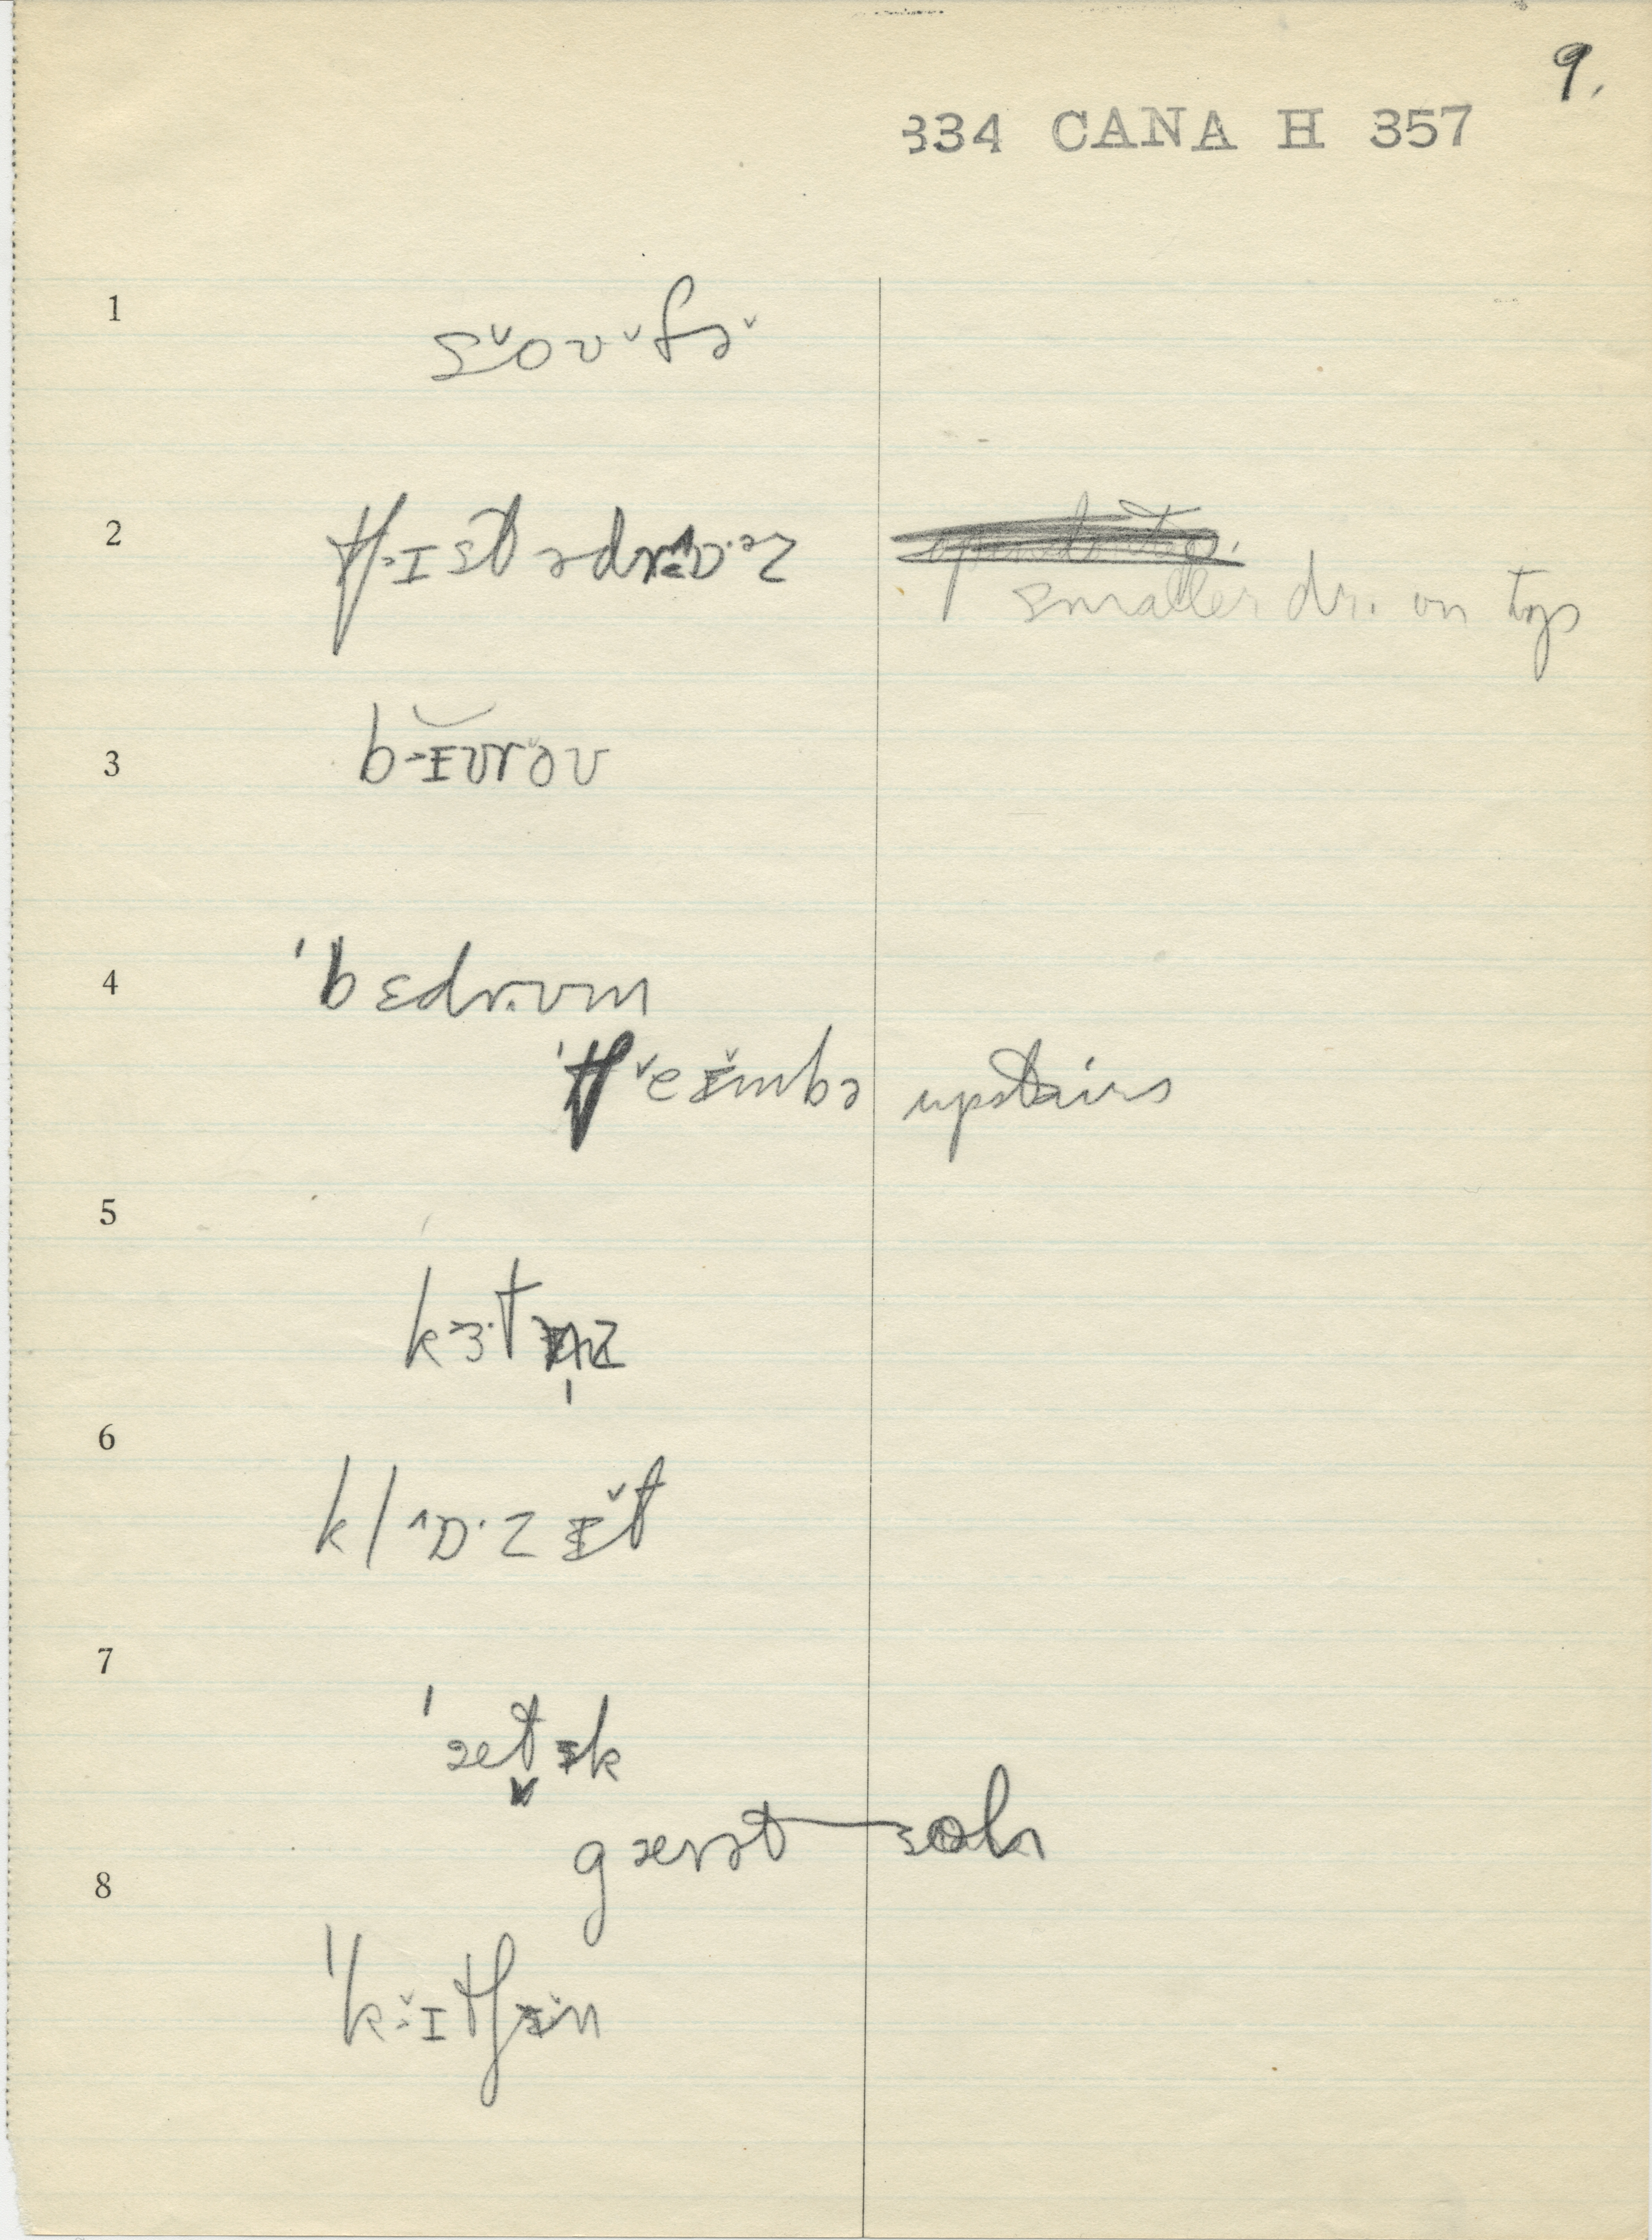 9.
334 CANA H 357
1 s˅oʊ˅fə˅
2 tʃ˃ɪst ədrɒ·əz
smaller dr. on top
3 b˃ɪʊrəʊ
4 ˈbɛdr.ʊm
ˈtʃ˅eɪmbə upstairs
5 k˃ɜ·tnz
6 kl˄ɒ·zɪ˅t
7 ˈætɪk
gærət — sɔlə
8 ˈk˃ɪtʃɪn